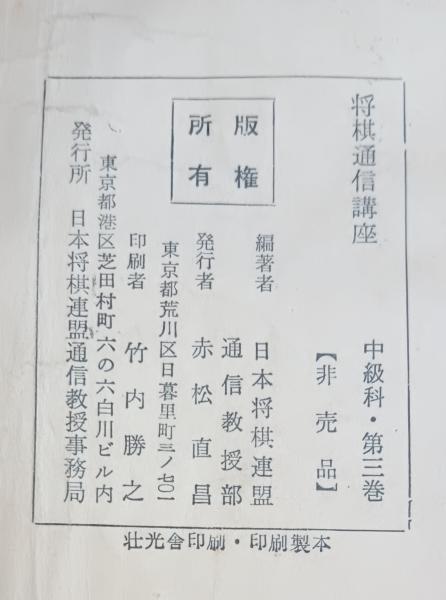 将棋通信講座
中級科・第三巻
【非売品】
版権
所有
編著者 日本将棋連盟
通信教授部
発行者 赤松直昌
東京都荒川区日暮里町三ノ七〇一
印刷者 竹内勝之
東京都港区芝田村町六の六白川ビル内
発行所 日本将棋連盟通信教授事務局
壮光舎印刷・印刷製本